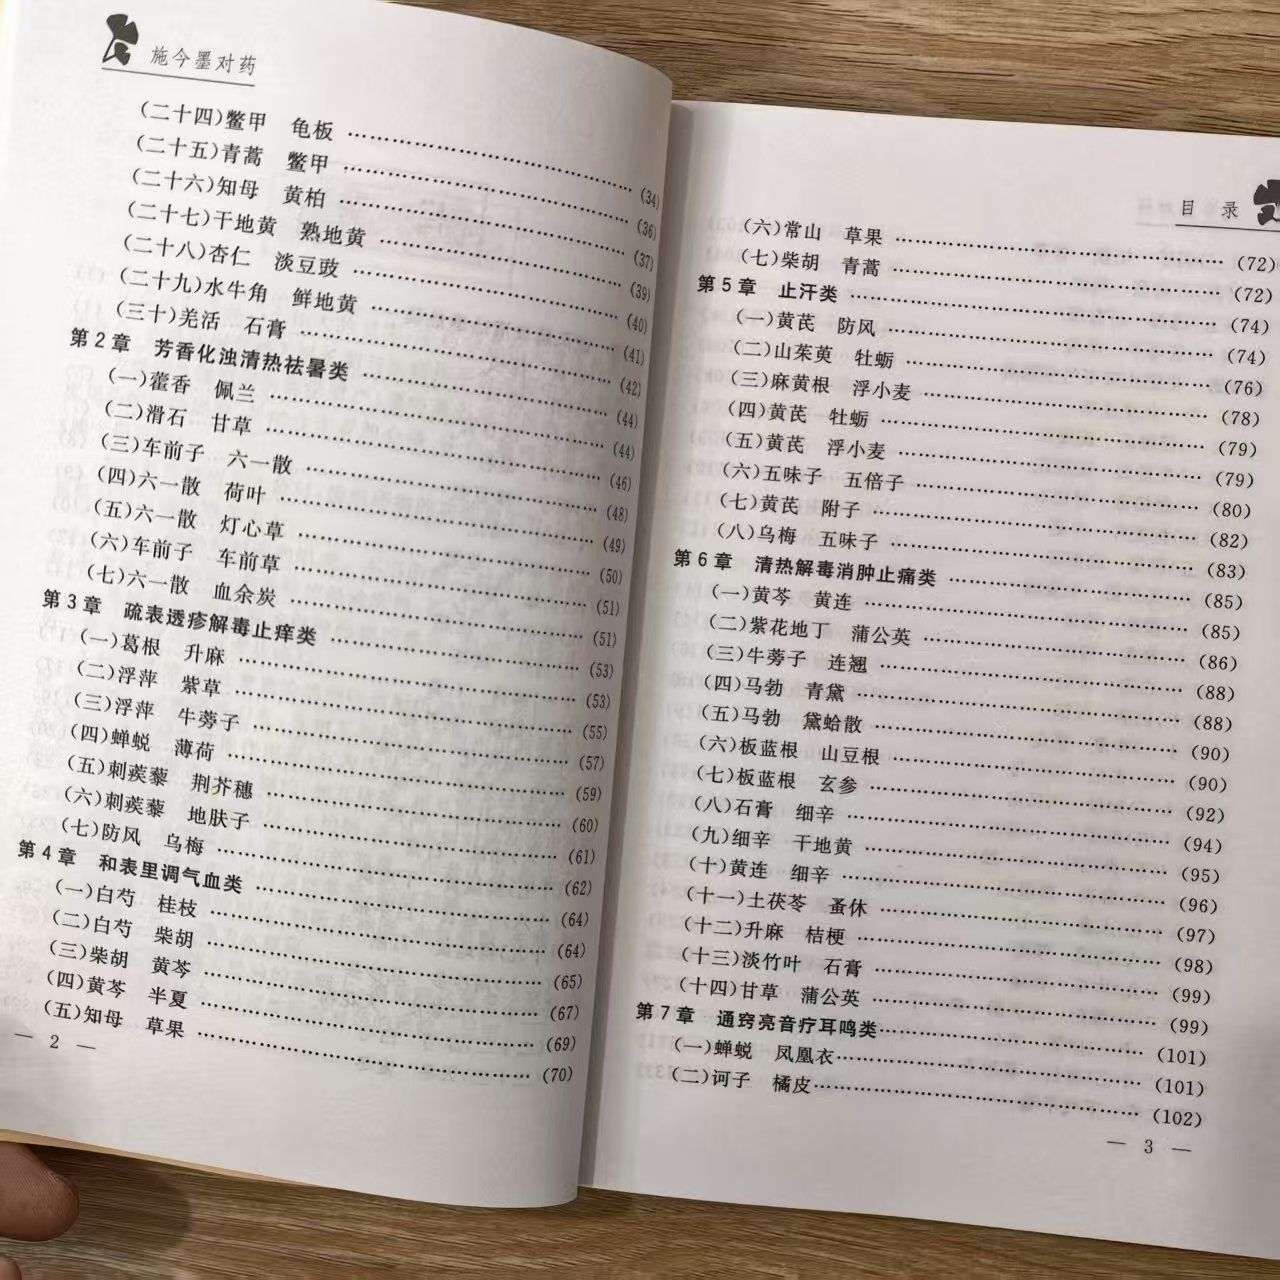 施今墨对药
(二十四)鳖甲 龟板 ……………………………(34)
(二十五)青蒿 鳖甲 ……………………………(36)
(二十六)知母 黄柏 ……………………………(37)
(二十七)干地黄 熟地黄 ……………………………(39)
(二十八)杏仁 淡豆豉 ……………………………(40)
(二十九)水牛角 鲜地黄 ……………………………(41)
(三十)羌活 石膏 ……………………………(42)
第2章 芳香化浊清热祛暑类 ……………………………(44)
(一)藿香 佩兰 ……………………………(44)
(二)滑石 甘草 ……………………………(46)
(三)车前子 六一散 ……………………………(48)
(四)六一散 荷叶 ……………………………(49)
(五)六一散 灯心草 ……………………………(50)
(六)车前子 车前草 ……………………………(51)
(七)六一散 血余炭 ……………………………(51)
第3章 疏表透疹解毒止痒类 ……………………………(53)
(一)葛根 升麻 ……………………………(53)
(二)浮萍 紫草 ……………………………(55)
(三)浮萍 牛蒡子 ……………………………(57)
(四)蝉蜕 薄荷 ……………………………(59)
(五)刺蒺藜 荆芥穗 ……………………………(60)
(六)刺蒺藜 地肤子 ……………………………(61)
(七)防风 乌梅 ……………………………(62)
第4章 和表里调气血类 ……………………………(64)
(一)白芍 桂枝 ……………………………(64)
(二)白芍 柴胡 ……………………………(65)
(三)柴胡 黄芩 ……………………………(67)
(四)黄芩 半夏 ……………………………(69)
(五)知母 草果 ……………………………(70)
— 2 —
目 录
(六)常山 草果 ……………………………(72)
(七)柴胡 青蒿 ……………………………(72)
第5章 止汗类 ……………………………(74)
(一)黄芪 防风 ……………………………(74)
(二)山茱萸 牡蛎 ……………………………(76)
(三)麻黄根 浮小麦 ……………………………(78)
(四)黄芪 牡蛎 ……………………………(79)
(五)黄芪 浮小麦 ……………………………(79)
(六)五味子 五倍子 ……………………………(80)
(七)黄芪 附子 ……………………………(82)
(八)乌梅 五味子 ……………………………(83)
第6章 清热解毒消肿止痛类 ……………………………(85)
(一)黄芩 黄连 ……………………………(85)
(二)紫花地丁 蒲公英 ……………………………(86)
(三)牛蒡子 连翘 ……………………………(88)
(四)马勃 青黛 ……………………………(88)
(五)马勃 黛蛤散 ……………………………(90)
(六)板蓝根 山豆根 ……………………………(90)
(七)板蓝根 玄参 ……………………………(92)
(八)石膏 细辛 ……………………………(94)
(九)细辛 干地黄 ……………………………(95)
(十)黄连 细辛 ……………………………(96)
(十一)土茯苓 蚤休 ……………………………(97)
(十二)升麻 桔梗 ……………………………(98)
(十三)淡竹叶 石膏 ……………………………(99)
(十四)甘草 蒲公英 ……………………………(99)
第7章 通窍亮音疗耳鸣类……………………………(101)
(一)蝉蜕 凤凰衣……………………………(101)
(二)诃子 橘皮……………………………(102)
— 3 —